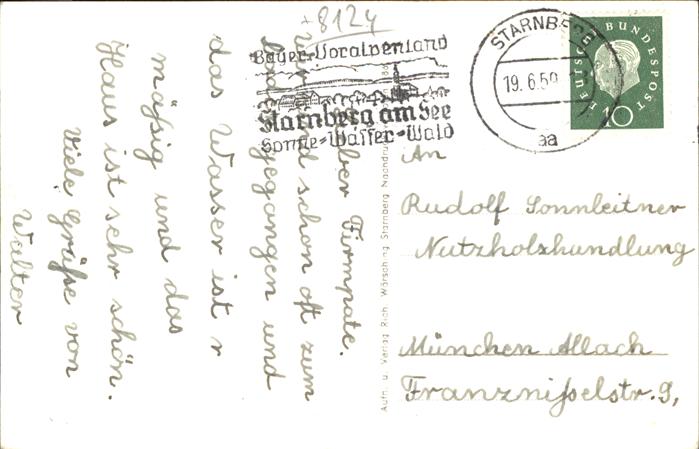 +8124
Bayer. Voralpenland
Starnberg am See
Sonne-Wasser-Wald
STARNBERG
19.6.59
aa
DEUTSCHE BUNDESPOST
10
Lieber Firmpate.
Wir sind schon oft zum
baden gegangen und
das Wasser ist r
mäßig und das
Haus ist sehr schön.
Viele Grüße von
Walter
Aufn. u. Verlag Rich. Wörsching Starnberg Nachdruck
An
Rudolf Sonnleitner
Nutzholzhandlung
München Allach
Franznißelstr. 9,